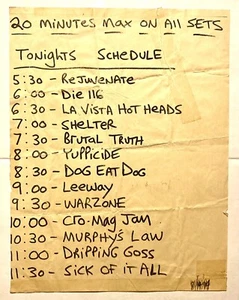 20 MINUTES MAX ON ALL SETS
TONIGHTS SCHEDULE
5:30 - REJUVENATE
6:00 - DIE 116
6:30 - LA VISTA HOT HEADS
7:00 - SHELTER
7:30 - BRUTAL TRUTH
8:00 - YUPPICIDE
8:30 - DOG EAT DOG
9:00 - LEEWAY
9:30 - WARZONE
10:00 - CRO-MAG JAM
10:30 - MURPHY'S LAW
11:00 - DRIPPING GOSS
11:30 - SICK OF IT ALL